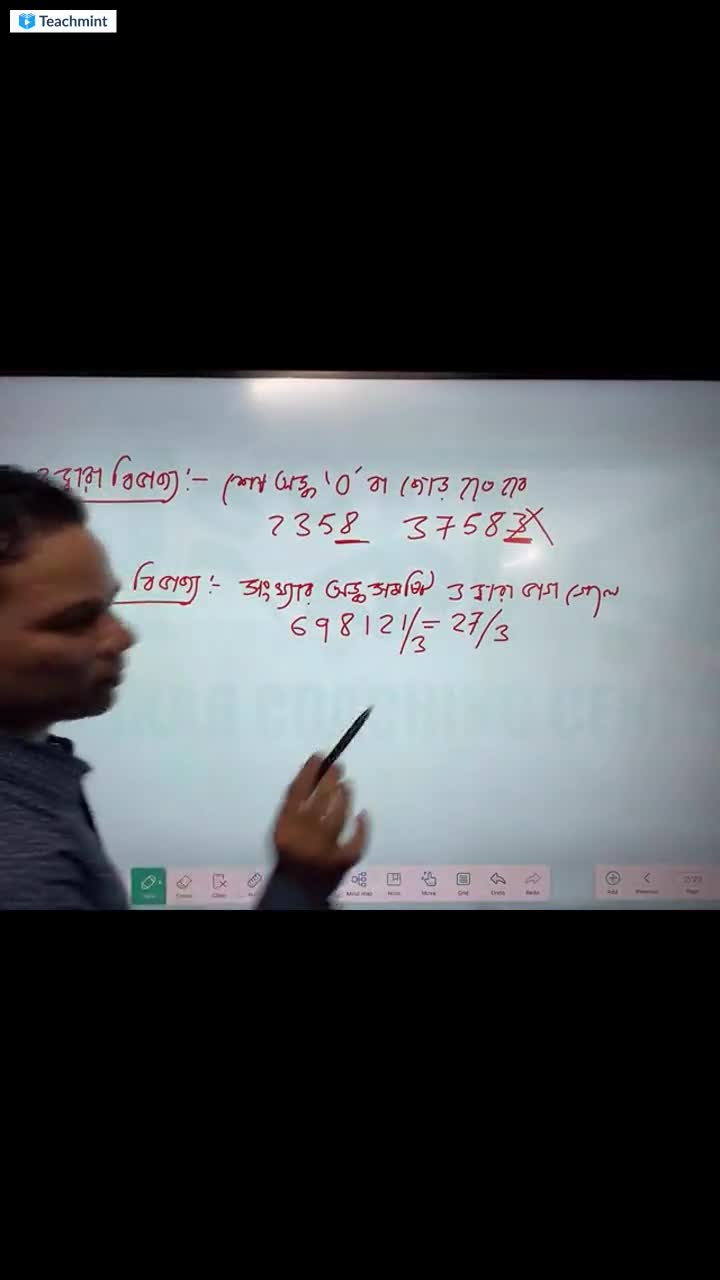 Teachmint
২ দ্বারা বিভাজ্য :- শেষ অঙ্ক '0' বা জোড়
2358 37583
বিভাজ্য :- সংখ্যার অঙ্ক সমষ্টি ৩ দ্বারা ভাগ গেলে
698121/3 = 27/3
Mind map Move Grid Undo Redo Add Previous